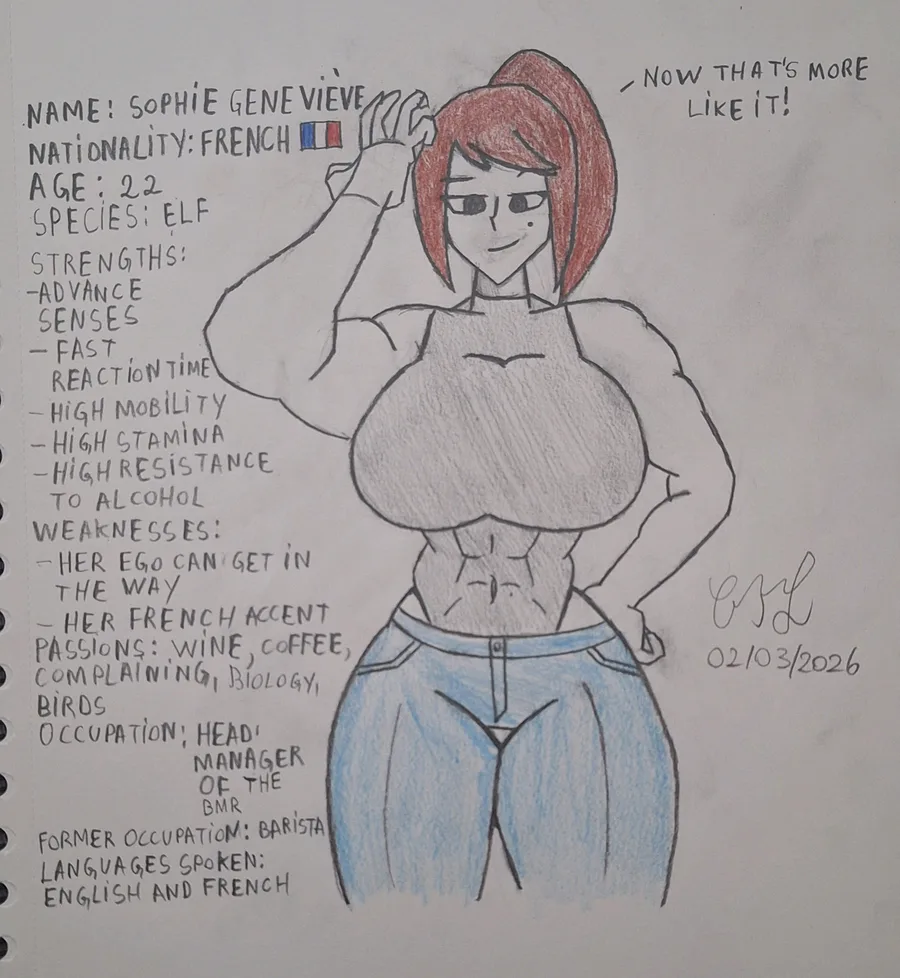 NAME: SOPHIE GENEVIÈVE
NATIONALITY: FRENCH
AGE: 22
SPECIES: ELF
STRENGTHS:
-ADVANCE
SENSES
- FAST
REACTION TIME
- HIGH MOBILITY
- HIGH STAMINA
- HIGH RESISTANCE
TO ALCOHOL
WEAKNESSES:
- HER EGO CAN GET IN
THE WAY
- HER FRENCH ACCENT
PASSIONS: WINE, COFFEE,
COMPLAINING, BIOLOGY,
BIRDS
OCCUPATION: HEAD
MANAGER
OF THE
BMR
FORMER OCCUPATION: BARISTA
LANGUAGES SPOKEN:
ENGLISH AND FRENCH
NOW THAT'S MORE
LIKE IT!
02/03/2026